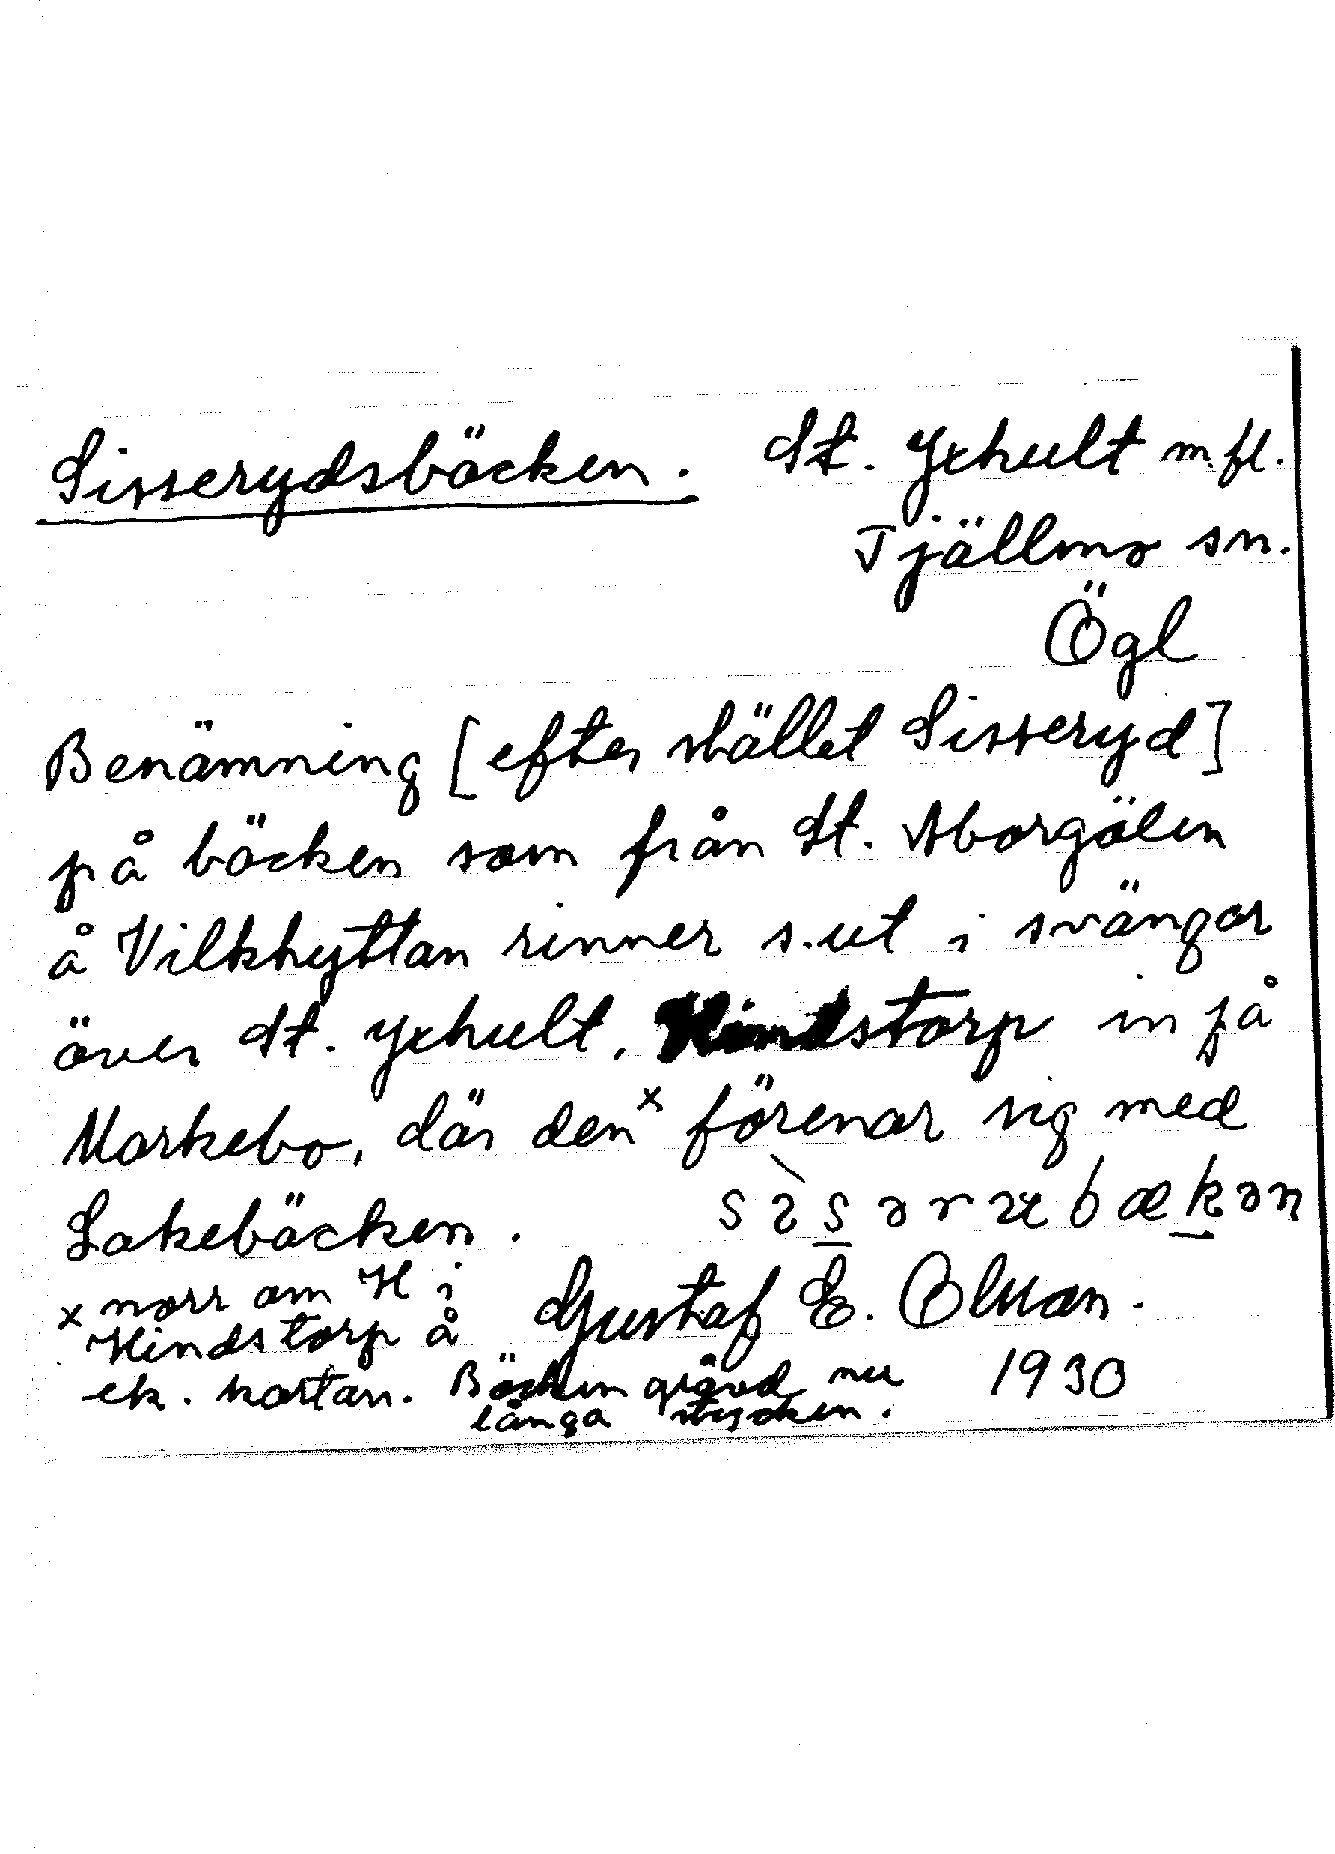 Sisserydsbäcken. St. Yxhult m.fl.
Tjällmo sn.
Ögl
Benämning [efter stället Sisseryd]
på bäcken som från St. Aborgölen
å Vilkhyttan rinner s.ut i svängar
över St. Yxhult, Hindstorp in på
Markebo, där denˣ förenar sig med
Lakebäcken.
x norr om H i
Hindstorp å
ek. kartan. Bäcken grävd nu
långa stycken.
Gustaf E. Olsson.
1930